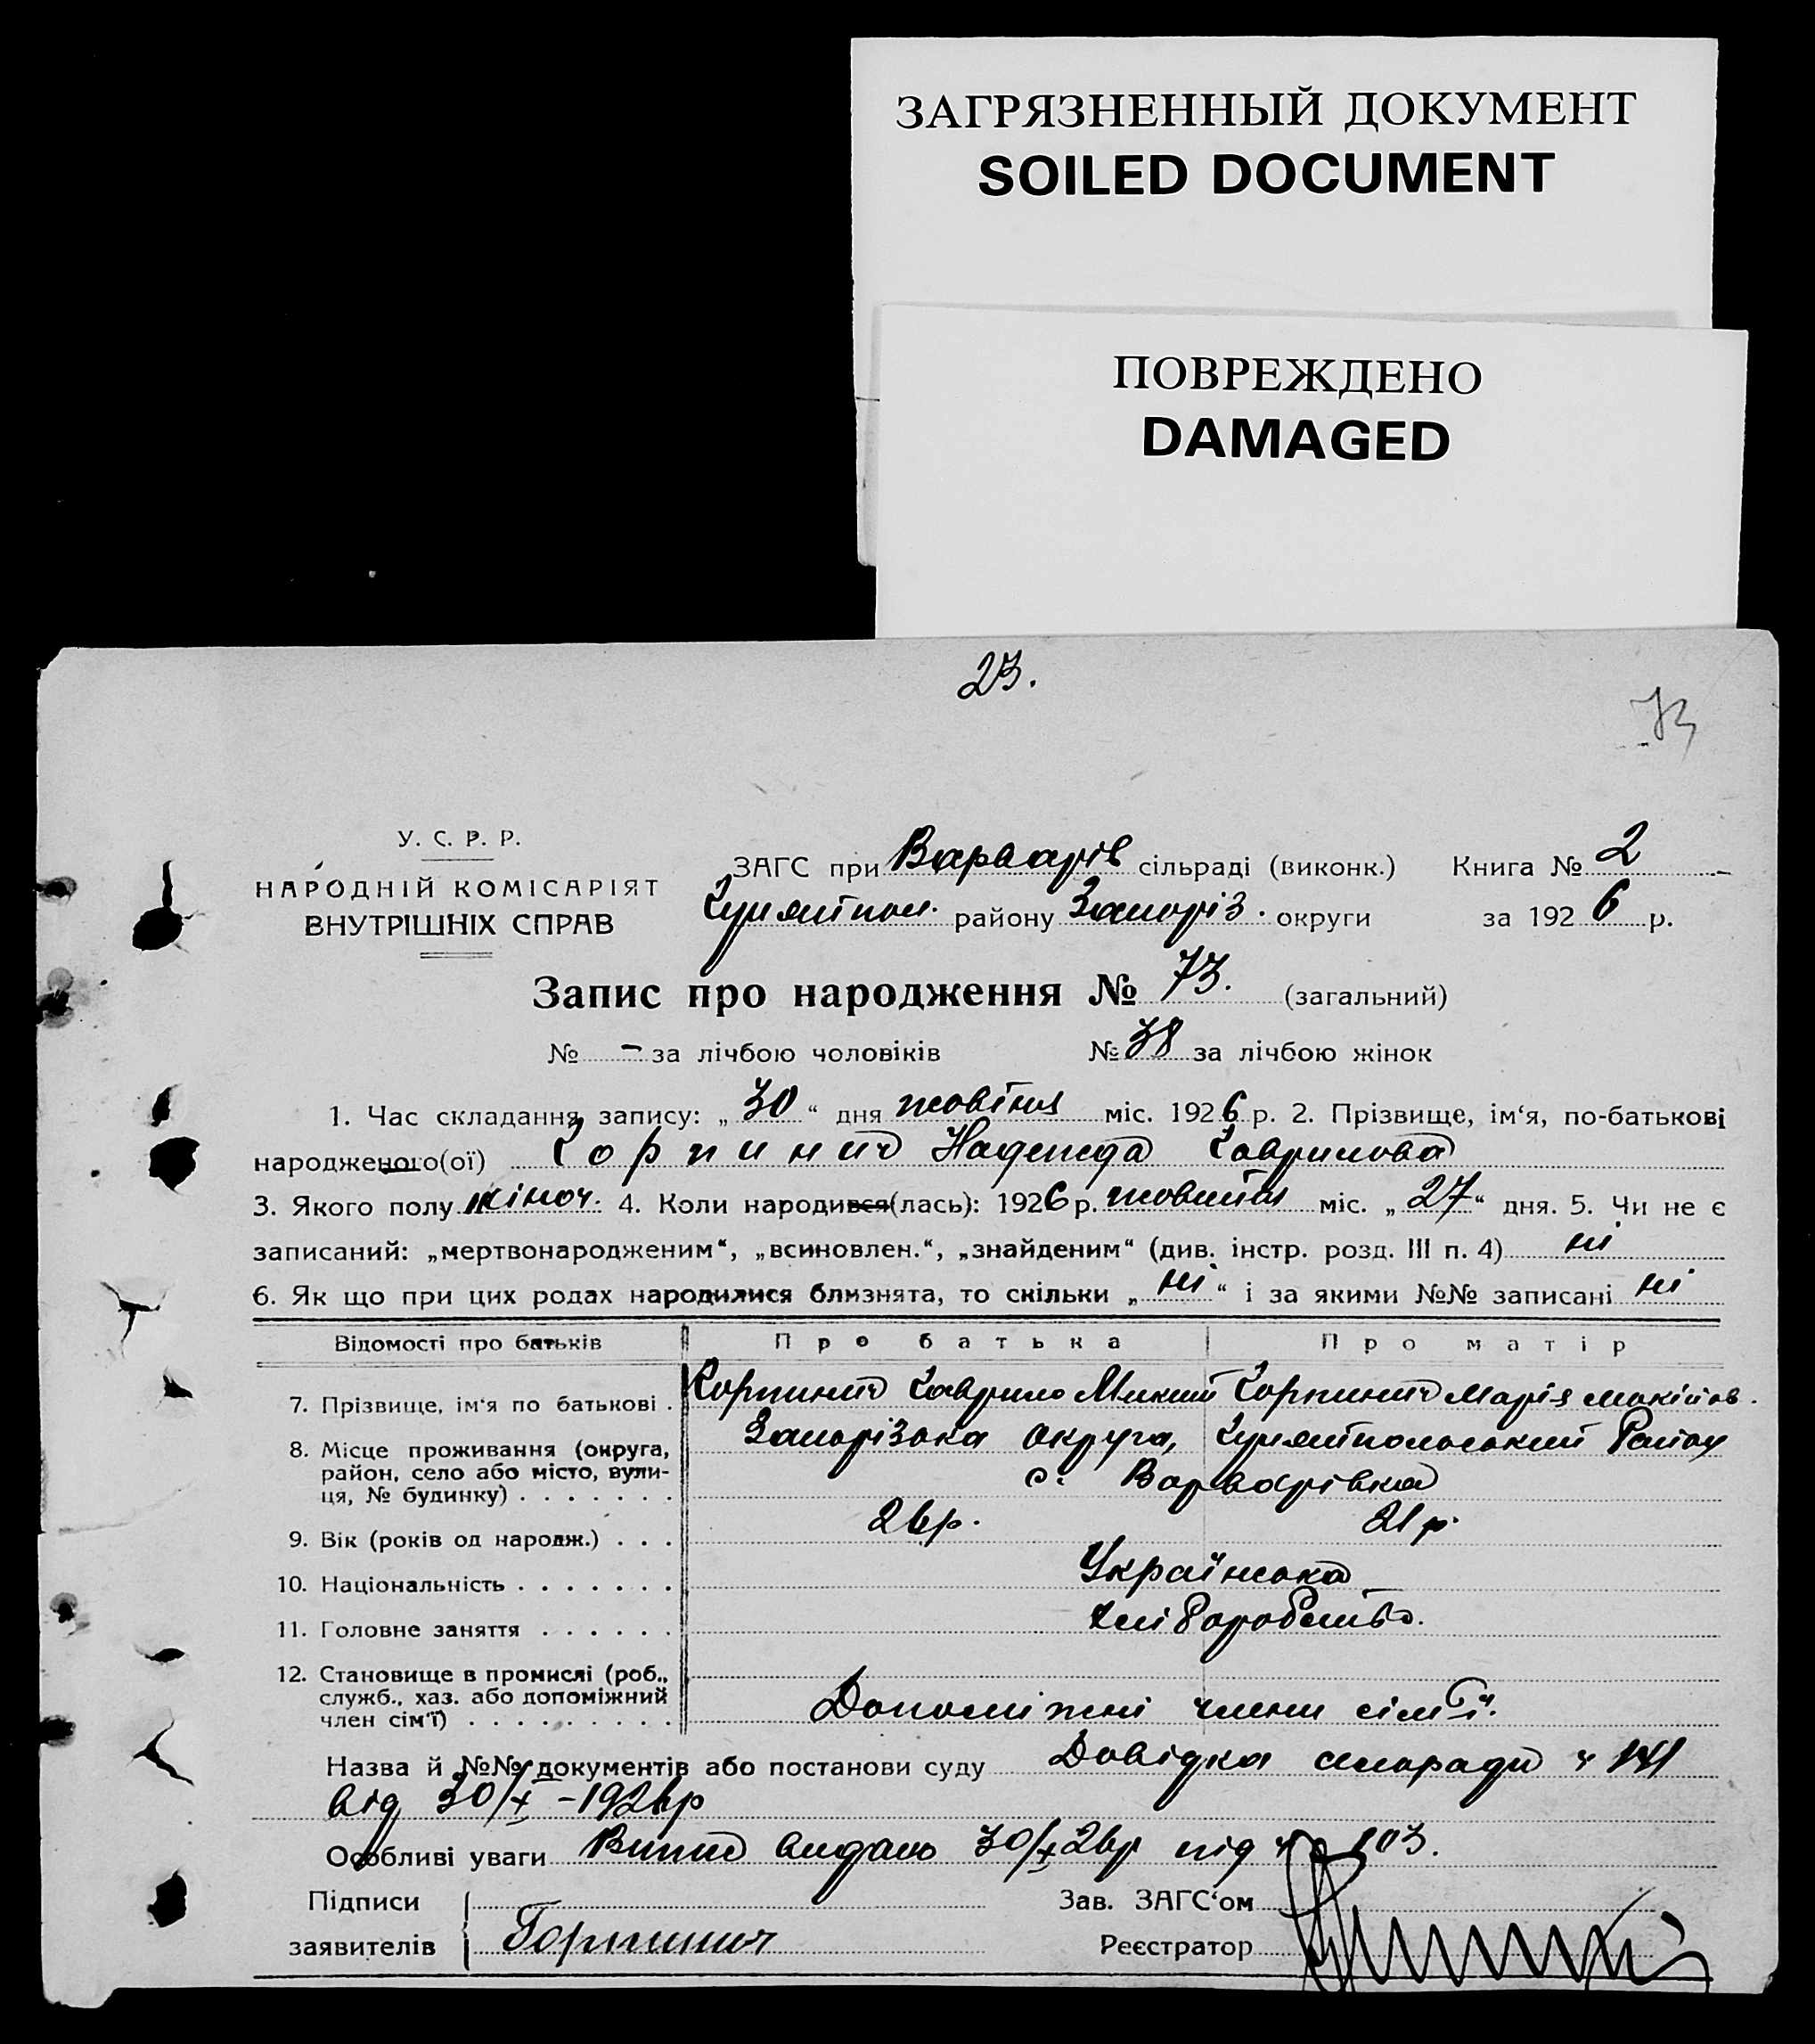 ЗАГРЯЗНЕННЫЙ ДОКУМЕНТ
SOILED DOCUMENT
ПОВРЕЖДЕНО
DAMAGED
23.
73
У. С. Р. Р.
НАРОДНІЙ КОМІСАРІЯТ
ВНУТРІШНІХ СПРАВ
ЗАГС при Варварів сільраді (виконк.) Книга № 2
Гуляйпол. району Запоріз. округи за 1926 р.
Запис про народження № 73. (загальний)
№ - за лічбою чоловіків № 38 за лічбою жінок
1. Час складання запису: „30“ дня жовтня міс. 1926 р. 2. Прізвище, ім‘я, по-батькові
народженого(ої) Горпинич Надежда Гаврилова
3. Якого полу жіноч. 4. Коли народився(лась): 1926 р. жовтня міс. „27“ дня. 5. Чи не є
записаний: „мертвонародженим“, „всиновлен.“, „знайденим“ (див. інстр. розд. III п. 4) ні
6. Як що при цих родах народилися близнята, то скільки „ні“ і за якими №№ записані ні
Відомості про батьків Про батька Про матір
7. Прізвище, ім‘я по батькові . Горпинич Гаврило Горпинич Марія Мокійов.
8. Місце проживання (округа, Запорізька округа, Гуляйпольський Район
район, село або місто, вули-
ця, № будинку) . . . . . . . с. Варварівка
9. Вік (років од народж.) . . . 26р. 21 р.
10. Національність . . . . . . . Українська
11. Головне заняття . . . . . . Хліборобство.
12. Становище в промислі (роб.,
служб., хаз. або допоміжний
член сім‘ї) . . . . . . . . . Допоміжні члени сімї.
Назва й №№ документів або постанови суду Довідка сільради ч 141
від 30/X -1926р
Особливі уваги Випис видано 30/X 26р під ч 103.
Підписи Зав. ЗАГС‘ом
заявителів Горпинич Реєстратор